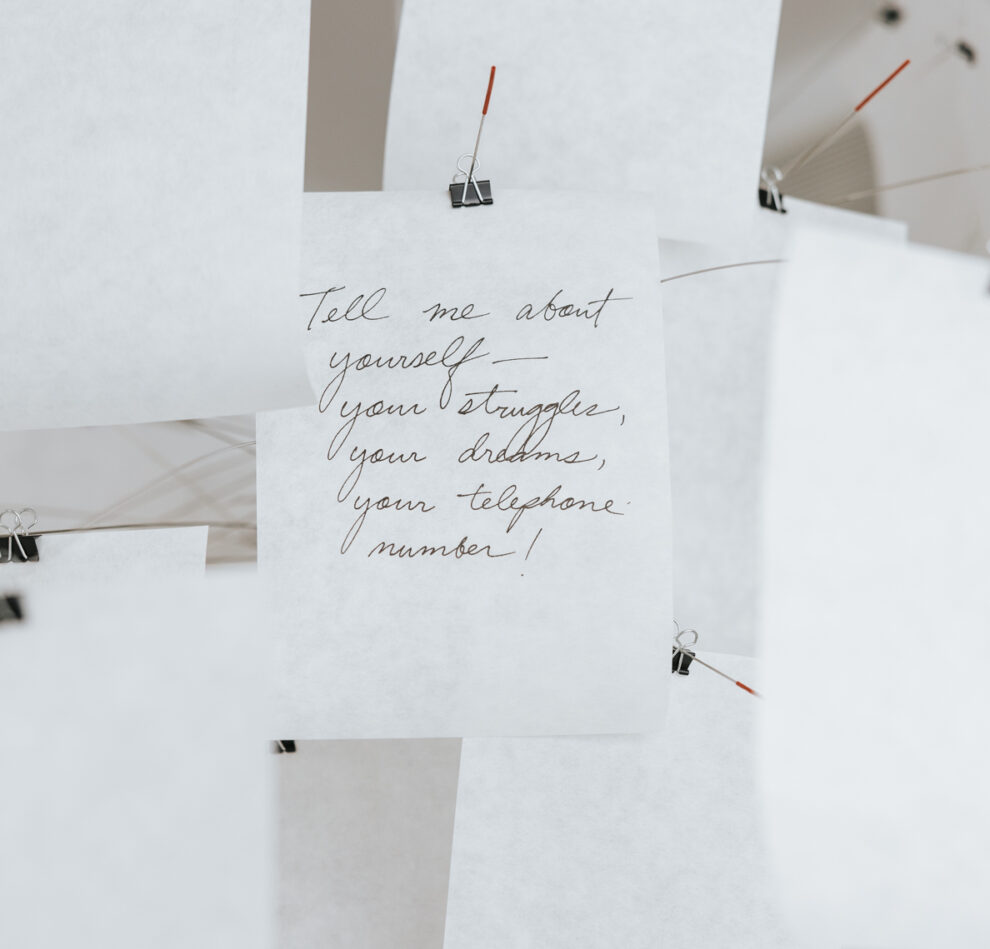 Tell me about
yourself —
your struggles,
your dreams,
your telephone
number!